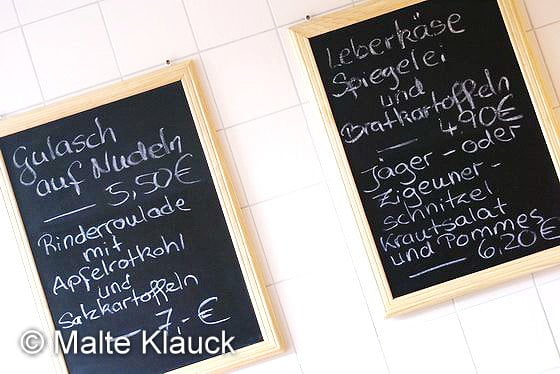 Gulasch
auf Nudeln
5,50€
Rinderroulade
mit
Apfelrotkohl
und
Salzkartoffeln
7,- €
Leberkäse
Spiegelei
und
Bratkartoffeln
4,90€
Jäger- oder
Zigeuner-
schnitzel
Krautsalat
und Pommes
6,20€
© Malte Klauck